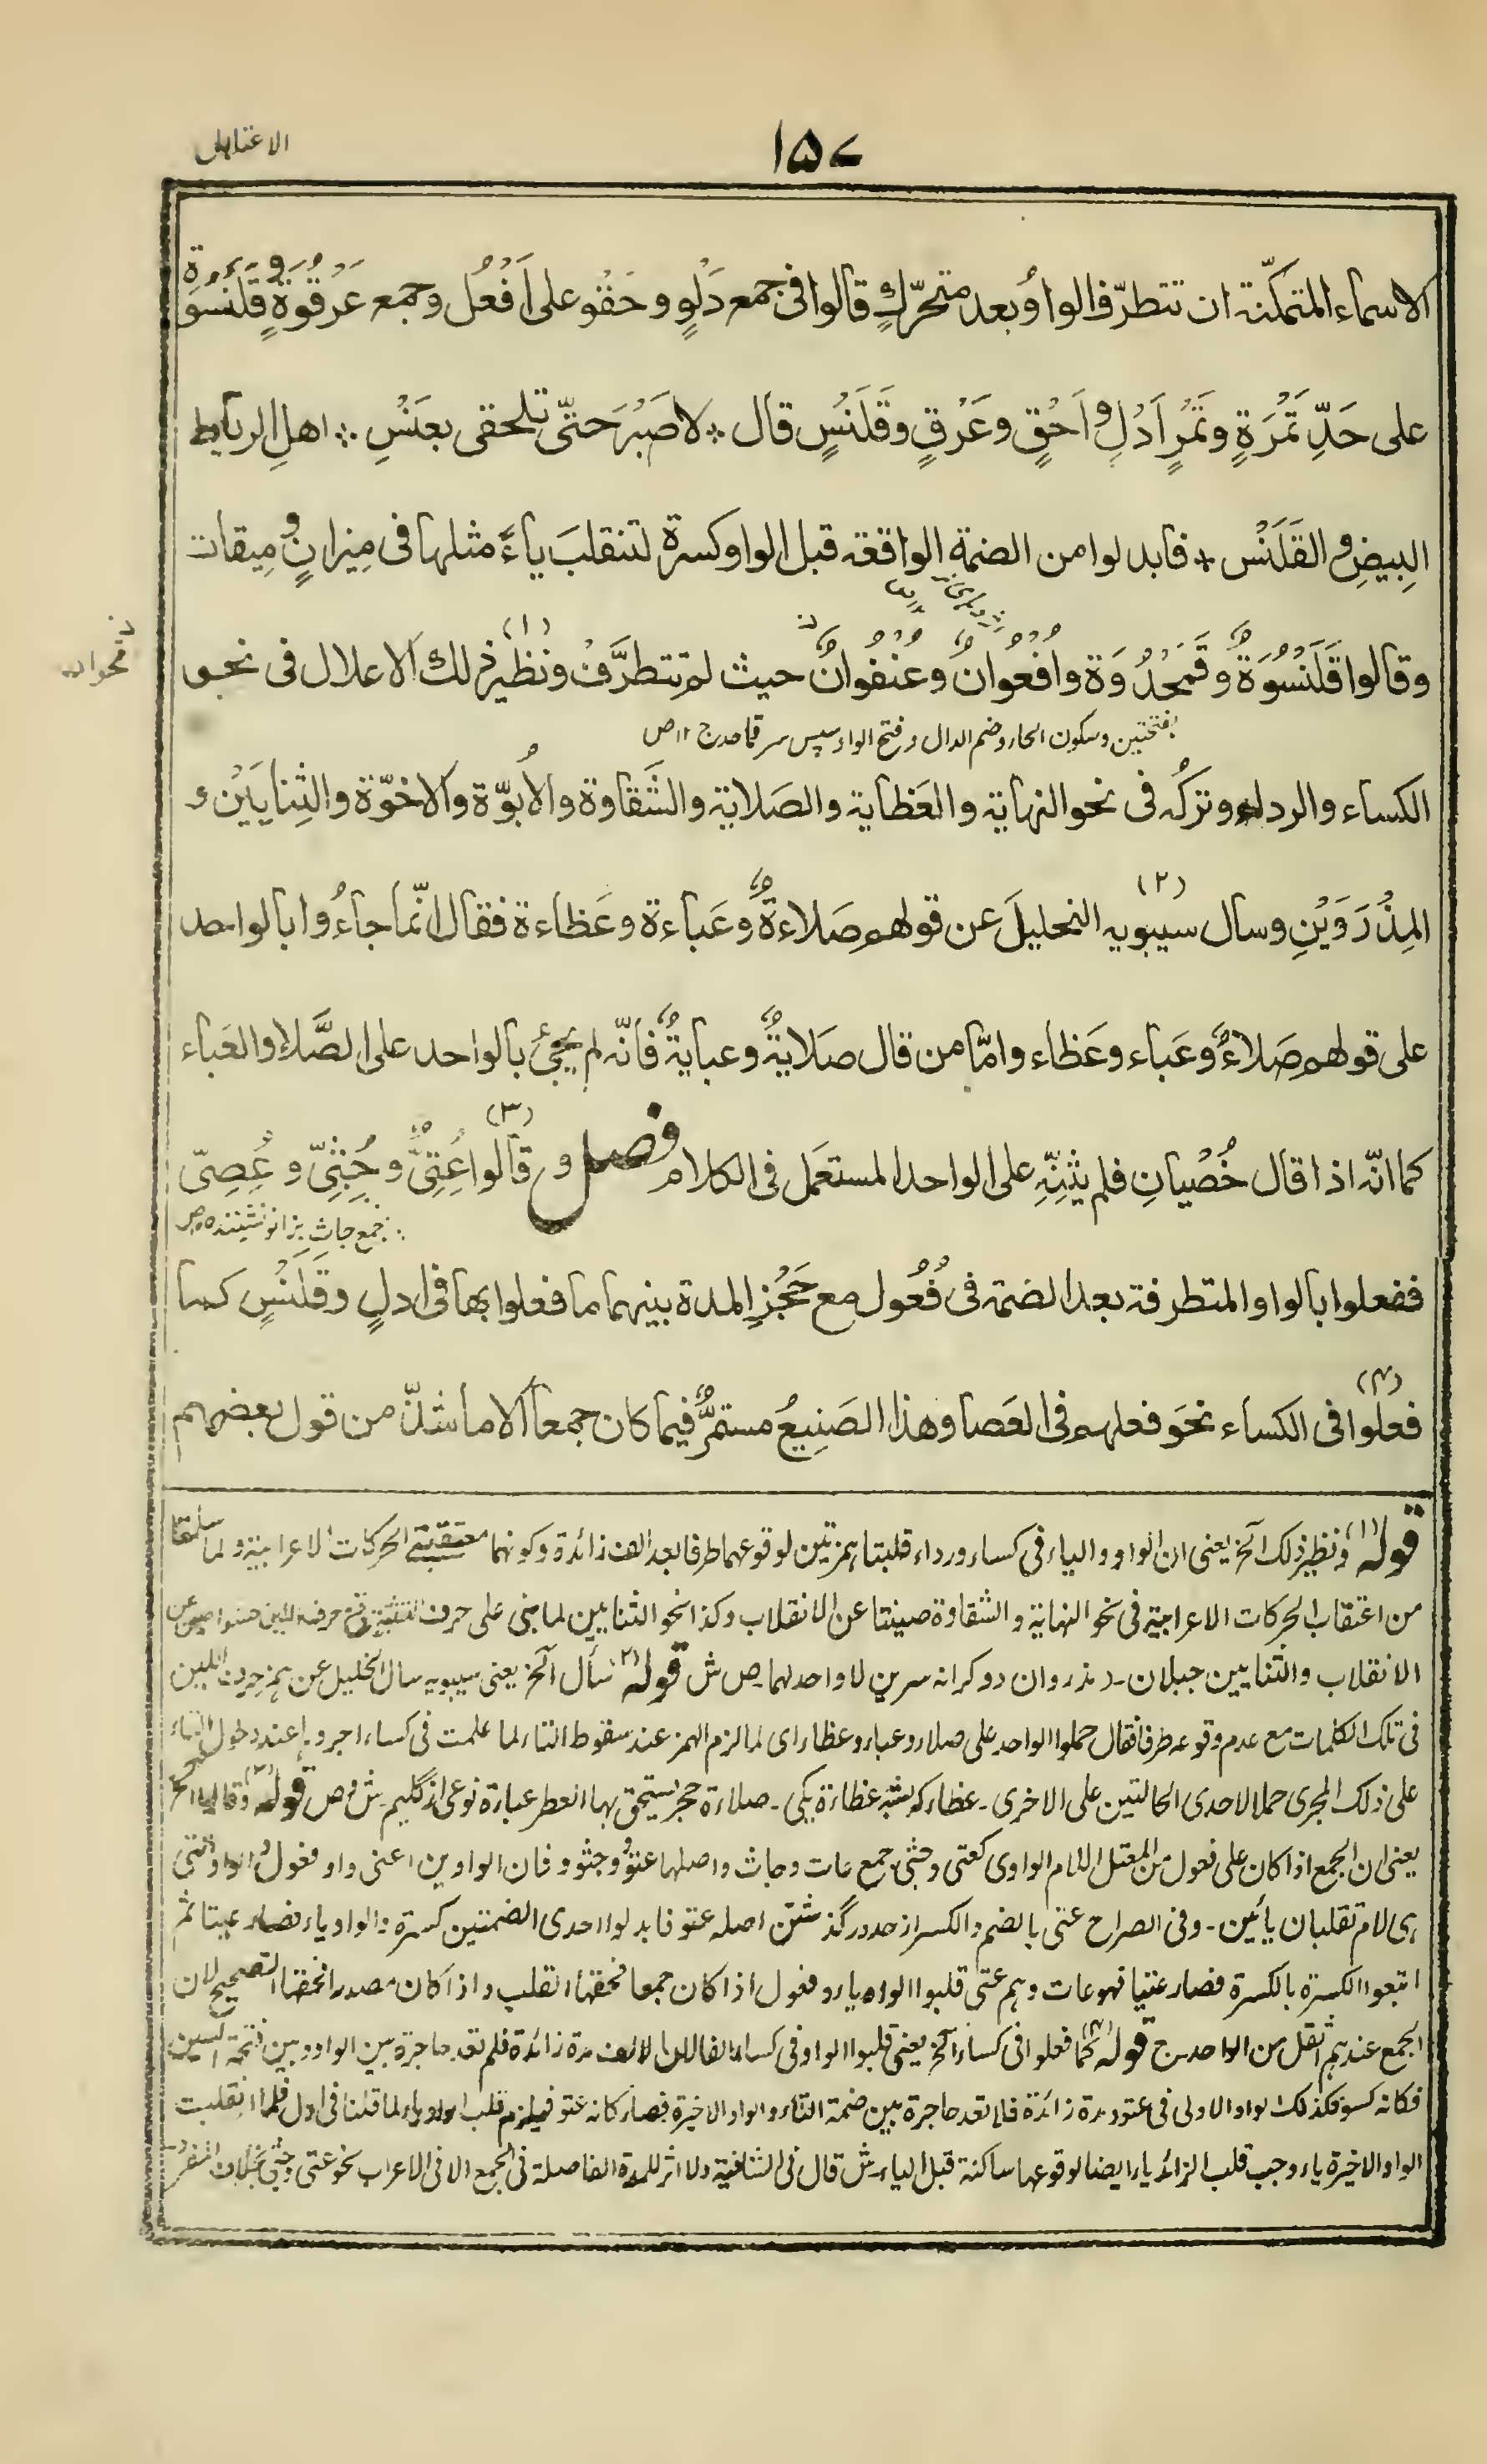 الاعتلال
١٥٧
الاسماء المتمكّنة ان تتطرّف الواو بعد متحرّكٍ قالوا فى جمع دَلْوٍ وحَقْوٍ على اَفْعُل وجمع عَرْقُوَةٍ وقَلَنْسُوَةٍ
على حَدِّ تَمْرَةٍ وتَمْرٍ اَدْلٍ واَحْقٍ وعَرْقٍ وقَلَنْسٍ قال ؞ لاصَبْرَ حَتّى تلحقى بعَنْسِ ؞ اهلِ الرياط
البِيضِ والقَلَنْسِ ؞ فابدلوا من الضمة الواقعة قبل الواو كسرة لتنقلبَ ياءً مثلها فى مِيزانٍ ومِيقات
وقالوا قَلَنْسُوَةٌ وقَمَحْدُوَة واُفْعُوانٌ وعُنْفُوانٌ حيث لم تتطرَّفْ (١) ونظير ذلك الاعلال فى نحو
بفتحتين وسكون الحاء وضم الدال وفتح الواو سپس سر قماحد ج ١٢ ص
الكساء والرداء وتركُه فى نحو النهاية والعَظاية والصَلاية والشَقاوة والاُبوّة والاخوّة والثِنايَيْن و
المِذْرَوَيْنِ (٢) وسأل سيبويه الخليلَ عن قولهم صَلاءةٌ وعَباءة وعَظاءة فقال انّما جاءُوا بالواحد
على قولهم صَلاءٌ وعَباء وعَظاء وامّا من قال صَلايةٌ وعبايةٌ فانّه لم يجئْ بالواحد على الصَّلاء والعَباء
كما انّه اذا قال خُصْيانِ فلم يثنِّهِ على الواحد المستعمَل فى الكلام فصل (٣) وقالوا عُتِىٌّ وجُثِىّ وعُصِىّ
جمع جاثٍ بزانو نشيننده ص
ففعلوا بالواو المتطرفة بعد الضمة فى فُعُول مع حَجْزِ المدة بينهما ما فعلوا بها فى ادلٍ وقَلَنْسٍ كما
(٤) فعلوا فى الكساء نحَو فعلهم فى العَصا وهذا الصَنِيعُ مستمرٌّ فيما كان جمعا الّا ما شذّ من قول بعضهم
قوله (١) ونظير ذلك آلخ يعنى ان الواو والياء فى كساء ورداء قلبتا همزتين لوقوعهما طرفا بعد الف زائدة وكونهما معتقبتى الحركات الاعرابية ولما سلمتا
من اعتقاب الحركات الاعرابية فى نحو النهاية والشقاوة صينتا عن الانقلاب وكذا نحو الثنايين لما بنى على حرف التثنية وقع حرف اللين حشوا صين عن
الانقلاب والثنايين حبلان ۔ د مذروان دو كرانه سرين لا واحد لهما ص ش قوله (٢) سأل آلخ يعنى سيبويه سأل الخليل عن همز حرف اللين
فى تلك الكلمات مع عدم وقوعه طرفا فقال حملوا الواحد على صلاء وعباء وعظاء اى لما لزم الهمز عند سقوط التاء لما علمت فى كساء اجروها عند دخول التاء
على ذلك المجرى حملا لاحدى الحالتين على الاخرى ۔ عظاءة يكى ۔ صلاءة حجر يستحق بها العطر عباءة نوعى از گليم ۔ ش وص قوله (٣) وقالوا آلخ
يعنى ان الجمع اذا كان على فعول من المعتل اللام الواوى كعتى وجثى جمع عات وجاث واصلهما عتوو وجثوو فان الواوين اعنى واو فعول والواو التى
هى لام تقلبان يائين ۔ وفى الصراح عتى بالضم والكسر از حد درگذشتن اصله عتو فابدلوا احدى الضمتين كسرة والواو ياء فصار عتيا ثم
اتبعوا الكسرة بالكسرة فصار عتيا فهو عات وهم عتى قلبوا الواو ياء وفعول اذا كان جمعا فحقها القلب واذا كان مصدرا فحقها التصحيح لان
الجمع عندهم اثقل من الواحد ۔ ح قوله (٤) كما فعلوا فى كساء آلخ يعنى قلبوا الواو فى كساء الفا لان الالف مدة زائدة فلم تعد حاجزة بين الواو وبين فتحة السين
فكانه كسو فكذلك الواو الاولى فى عتو ومدة زائدة فلا تعد حاجزة بين ضمة التاء والواو الاخيرة فصار كانه عتو فيلزم قلب الواو ياء لما قلنا فى ادل فلما انقلبت
الواو الاخيرة ياء وجب قلب الزائد ياء ايضا لوقوعها ساكنة قبل الياء ۔ ش قال فى الشافية ولا اثر للمدة الفاصلة فى الجمع الا فى الاعراب نحو عتى وجثى بخلاف المفرد